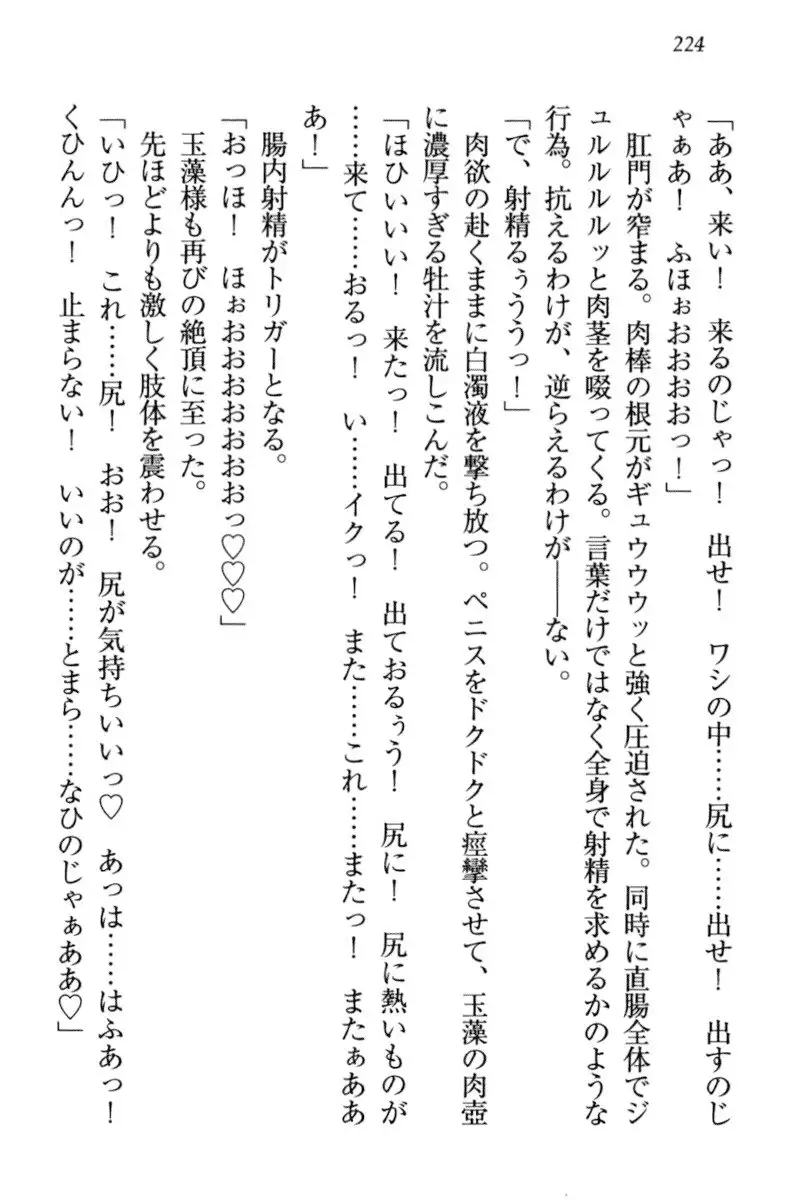 224
「ああ、来い！　来るのじゃっ！　出せ！　ワシの中……尻に……出せ！　出すのじ
ゃぁあ！　ふほぉおおおおっ！」
　肛門が窄まる。肉棒の根元がギュウウウッと強く圧迫された。同時に直腸全体でジ
ュルルルルッと肉茎を啜ってくる。言葉だけではなく全身で射精を求めるかのような
行為。抗えるわけが、逆らえるわけが――ない。
「で、射精るぅううっ！」
　肉欲の赴くままに白濁液を撃ち放つ。ペニスをドクドクと痙攣させて、玉藻の肉壺
に濃厚すぎる牡汁を流しこんだ。
「ほひいいい！　来たっ！　出てる！　出ておるぅう！　尻に！　尻に熱いものが
……来て……おるっ！　い……イクっ！　また……これ……またっ！　またぁああ
あ！」
　腸内射精がトリガーとなる。
「おっほ！　ほぉおおおおおおおっ♡♡♡」
　玉藻様も再びの絶頂に至った。
　先ほどよりも激しく肢体を震わせる。
「いひっ！　これ……尻！　おお！　尻が気持ちいいっ♡　あっは……はふあっ！
くひんんっ！　止まらない！　いいのが……とまら……なひのじゃぁああ♡」